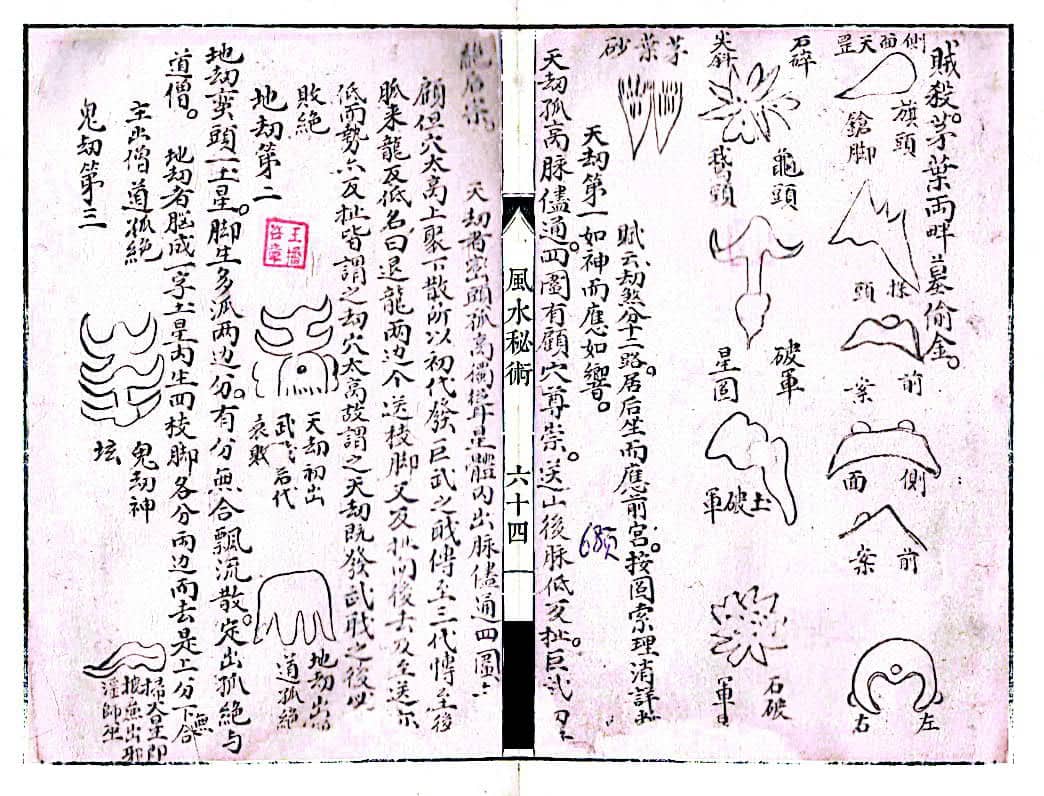 賊殺。茅葉両畔墓偷金。
側面天罡
旗頭
鎗脚
探頭
前案
側面
前案
左
右
石碎
尖斜
龜頭
鵝頭
破軍
星圖
土破軍
石破
軍
茅葉砂
賦云劫煞分十二路。居后坐而應前宮。按圖索理消詳
天劫第一如神而應如響。
天劫孤高脉儘通。四圍有顧穴尊崇。送山後脉低反扯。巨武
68頁
風水秘術
六十四
天劫者巒頭孤高獨聳星體内出脉儘通四圍
顧但穴太高上聚下散所以初代發巨武之職傳至三代傳至後
脈来龍反低名曰退龍両边个送枝脚又反扯向後去及至送
低而勢六反扯皆謂之劫穴太高故謂之天劫既發武職之後
敗絶
地劫第二
天劫初出
武后代
哀敗
地劫出
道孤絶
地劫巒頭一土星。脚生多派両边分。有分無合飄流散。定出孤絶与
道僧。
地劫者脳成一字土星内生四枝脚各分両边而去是上分下無合
主出僧道孤絶
鬼劫第三
鬼劫神
坛